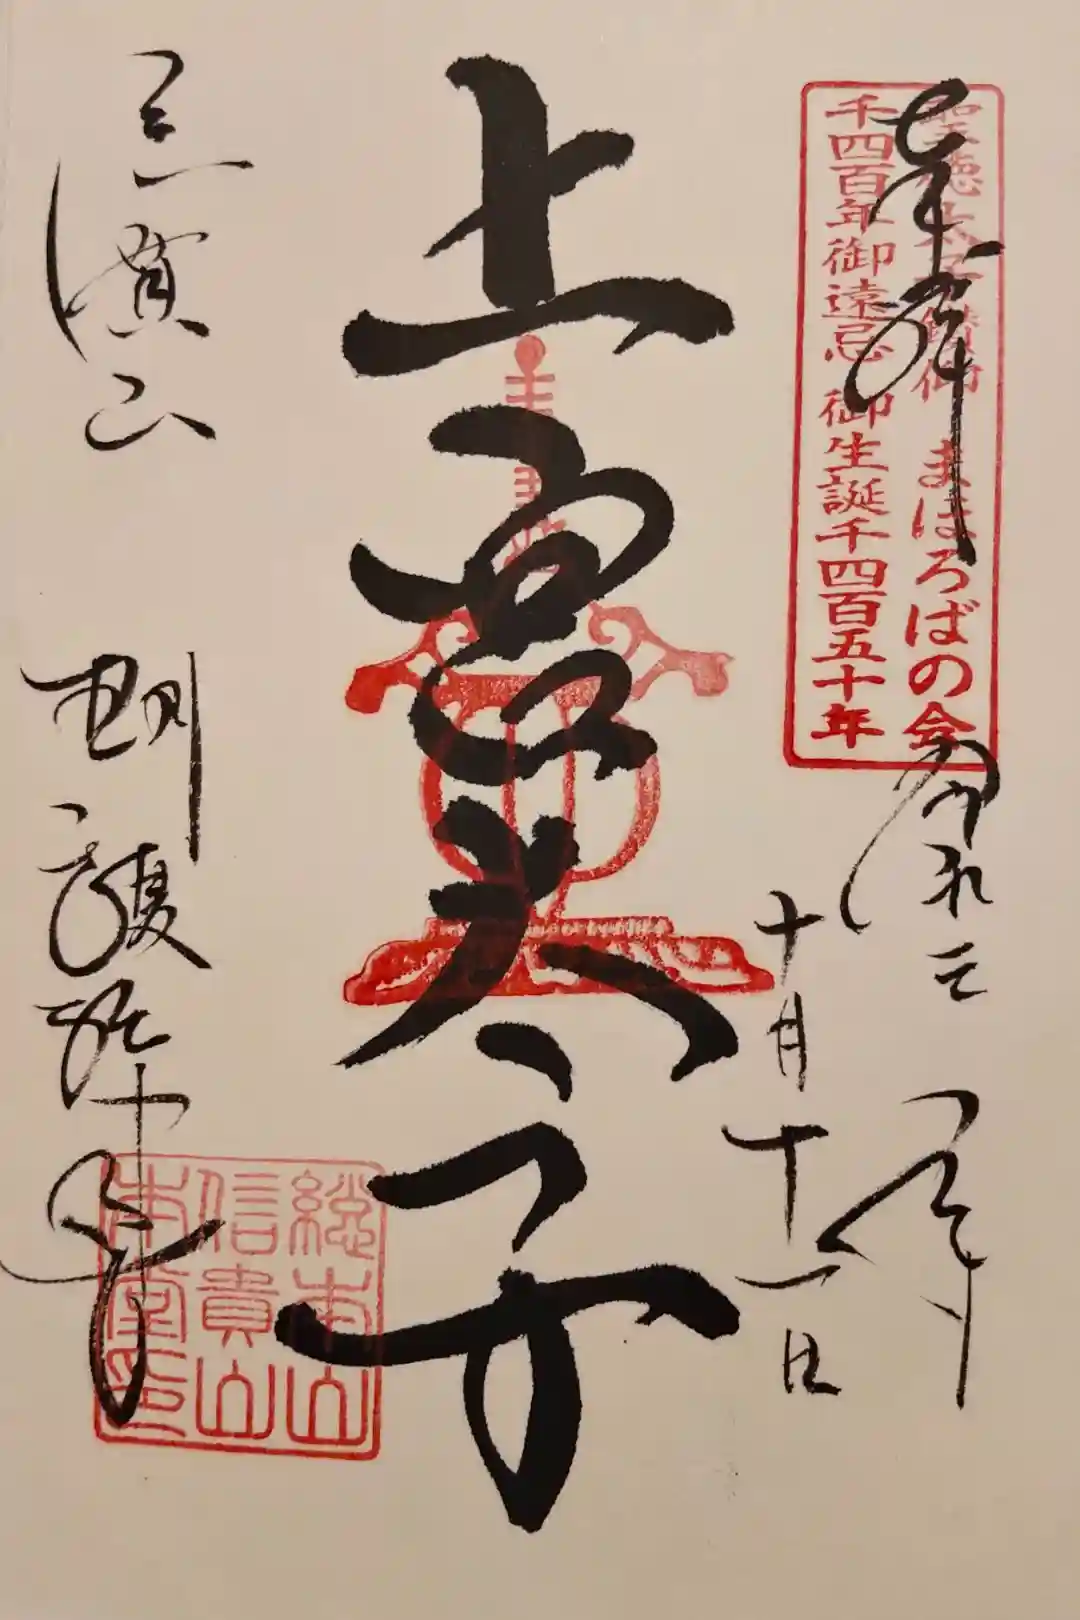 奉拝
聖徳太子讃仰 まほろばの会
千四百年御遠忌 御生誕千四百五十年
令和三年
十月十一日
上宮太子
信貴山
朝護孫子寺
総本山
信貴山
本堂印